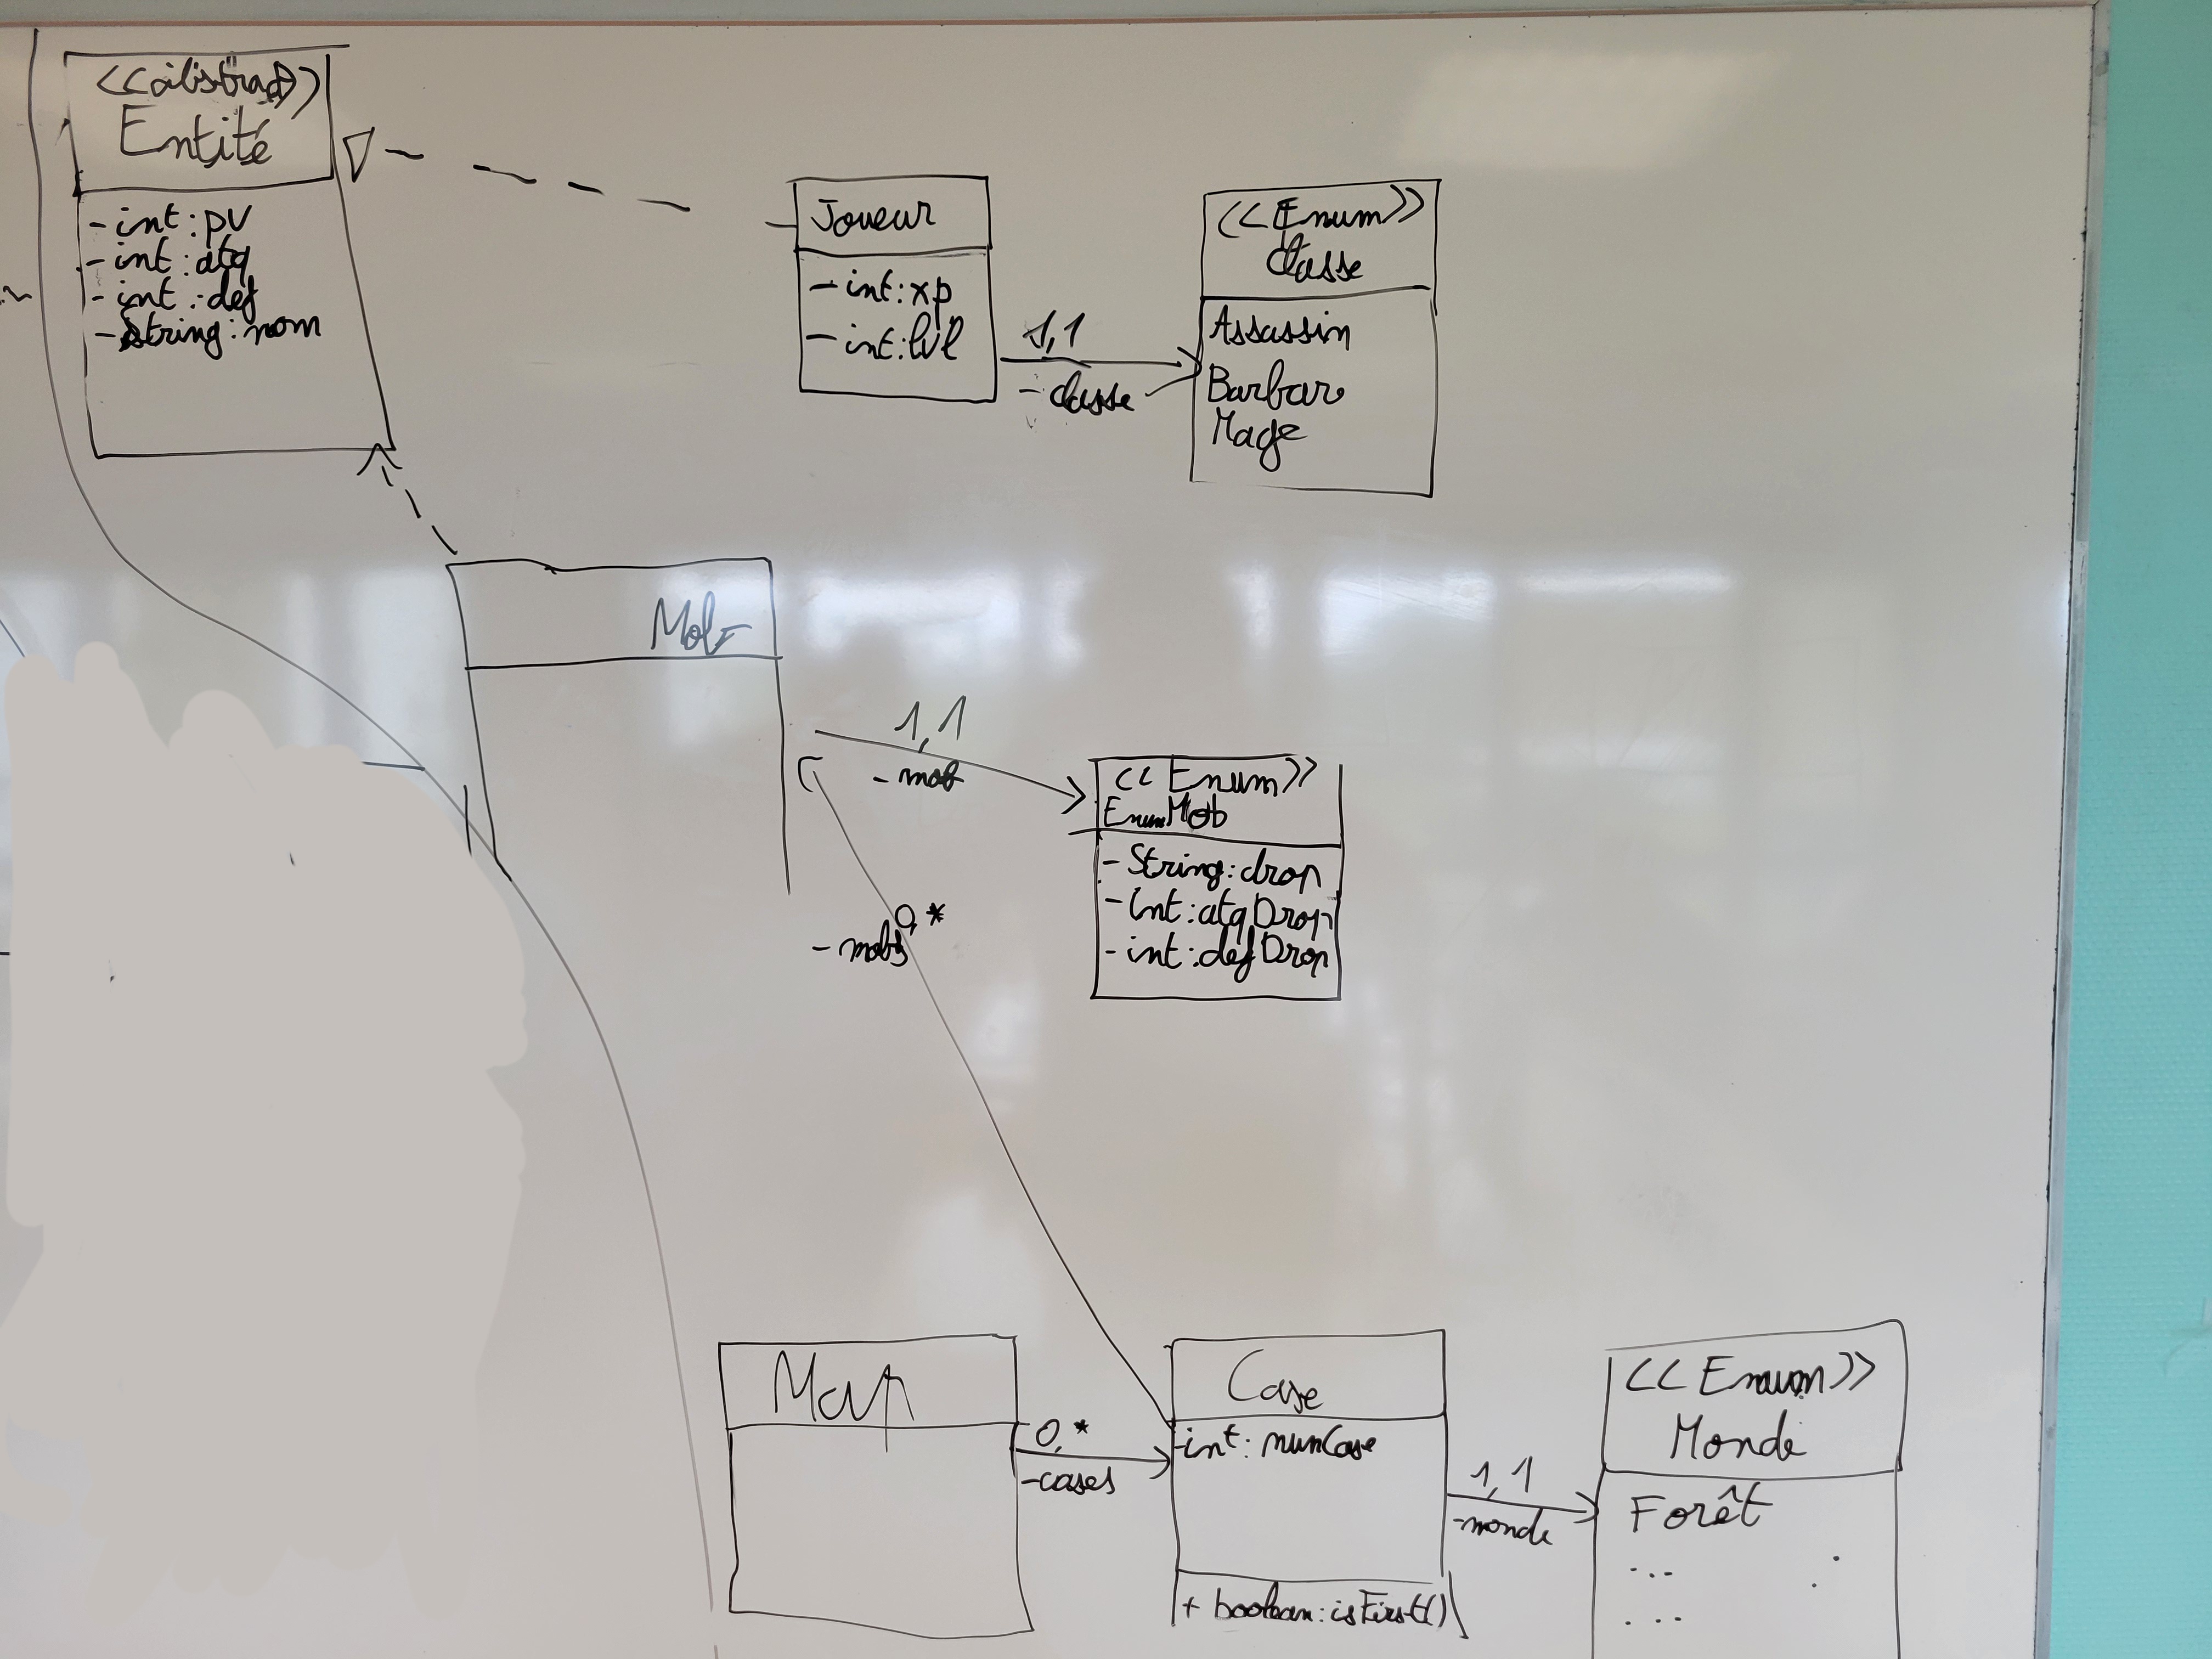 <<abstract>>
Entité
- int : pv
- int : atq
- int : def
- String : nom
Joueur
- int : xp
- int : lvl
1,1
- classe
<<Enum>>
Classe
Assassin
Barbare
Mage
Mob
1,1
- mob
<<Enum>>
EnumMob
- String : drop
- int : atqDrop
- int : defDrop
0,*
- mobs
Map
0,*
- cases
Case
- int : numCase
+ boolean : isFirst()
1,1
- monde
<<Enum>>
Monde
Forêt
...
...